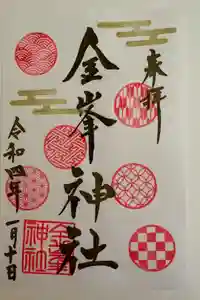 来拝
金峯神社
令和四年一月十日
金峯
神社